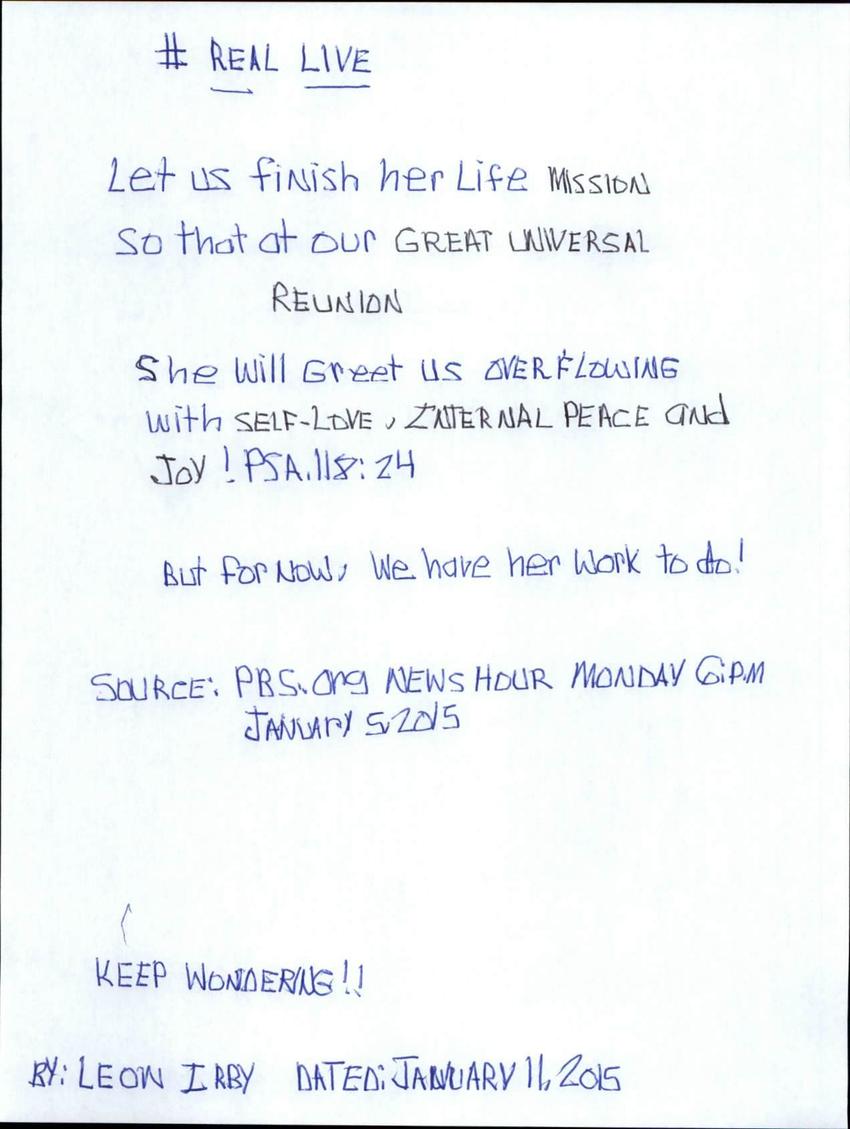 # REAL LIVE
Let us finish her Life MISSION
So that at our GREAT UNIVERSAL
REUNION
She will Greet us OVERFLOWING
with SELF-LOVE, INTERNAL PEACE and
JOY! PSA.118:24
But for Now, We have her Work to do!
SOURCE: PBS.org NEWS HOUR MONDAY 6:P.M
JANUARY 5,2015
KEEP WONDERING!!
BY: LEON IRBY DATED: JANUARY 11, 2015